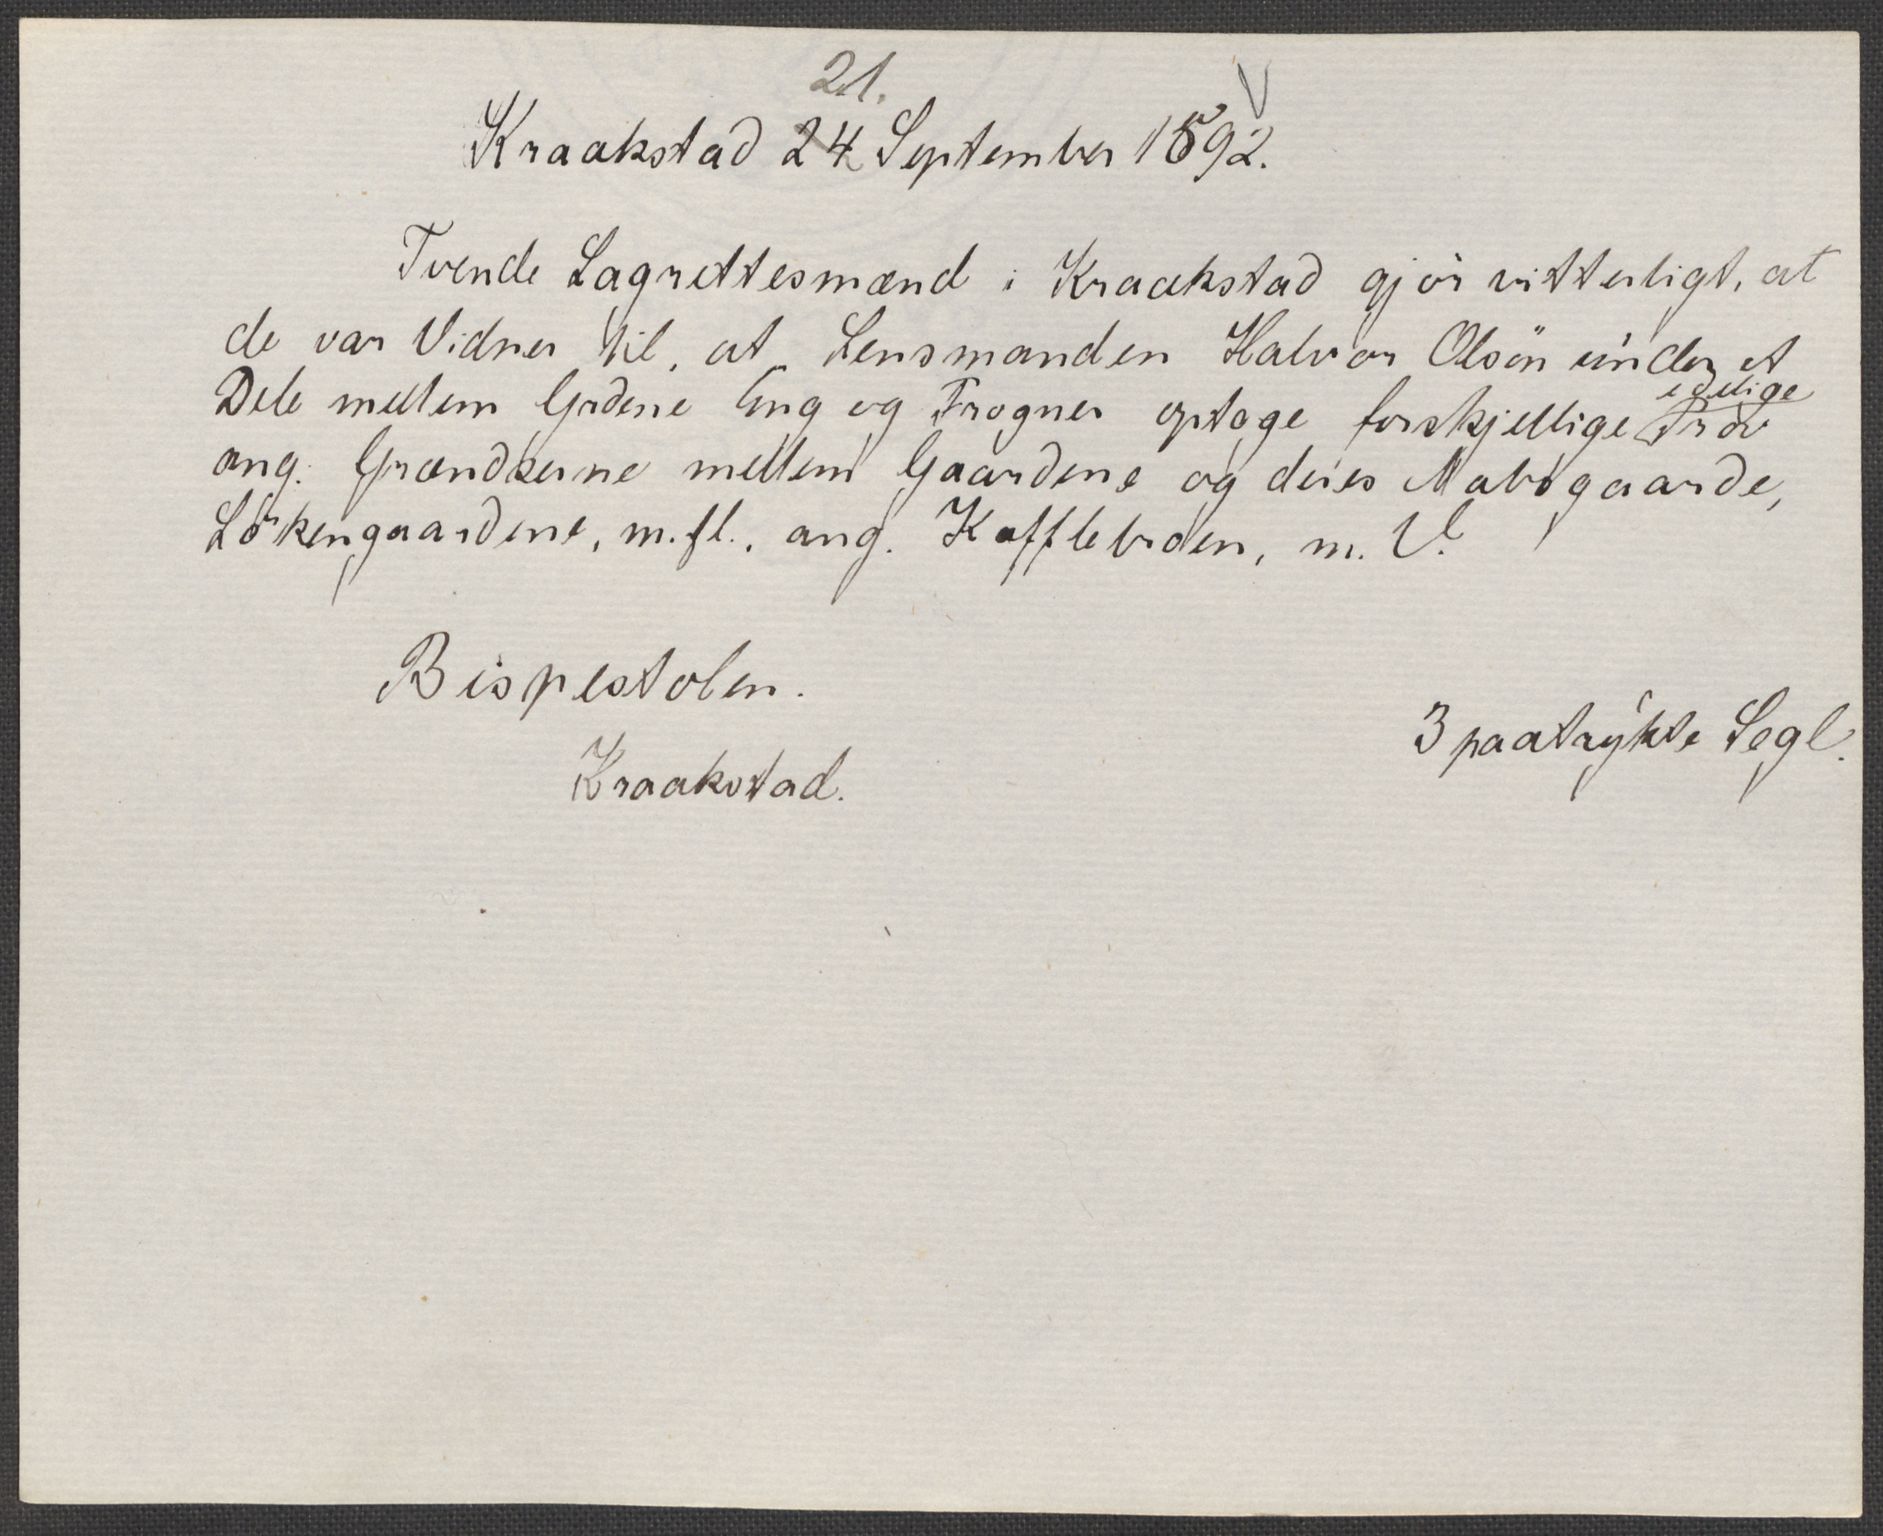 21. V
Kraakstad 24 September 1592.
Tvende Lagrettesmænd i Kraakstad gjör vitterligt, at
de var Vidner til, at Lensmanden Halvor Olsön under et
edelige
Dele mellem Grdene Eng og Frogner optoge forskjellige Pröv
ang. Grændserne mellem Gaardene og deres Nabogaarde,
Lökengaardene, m.fl., ang. Kafflebroen, m. V.
Bispestolen.
3 paatrykte Segl.
Kraakstad.